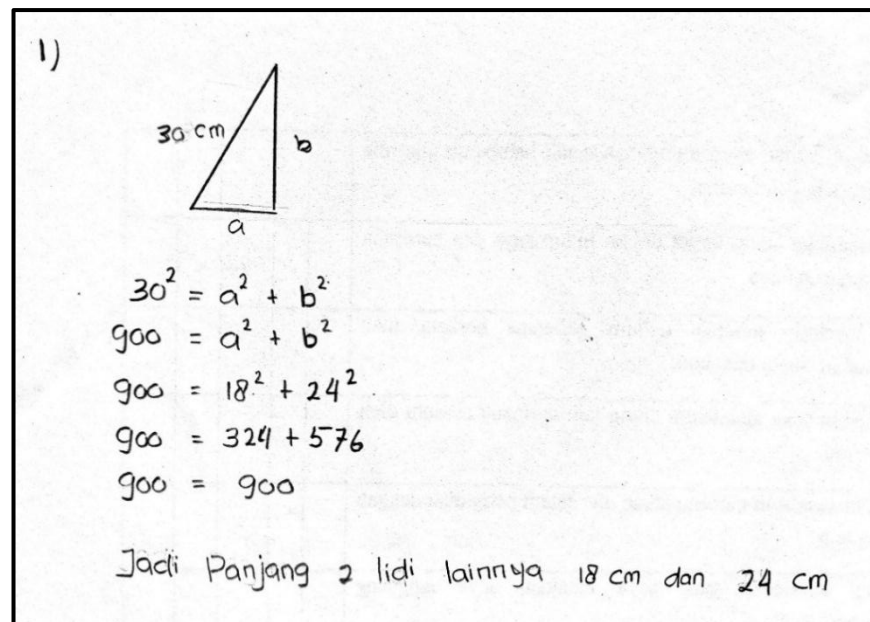 1)
30 cm
b
a
30² = a² + b²
900 = a² + b²
900 = 18² + 24²
900 = 324 + 576
900 = 900
Jadi Panjang 2 lidi lainnya 18 cm dan 24 cm